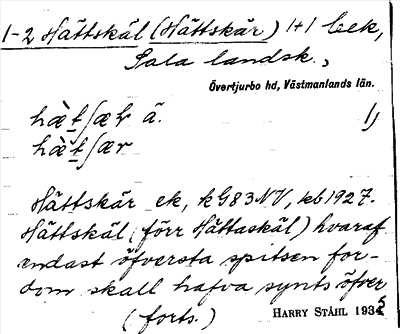 1-2 Hättskäl (Hättskär) 1+1 bek,
Sala landsk.,
Övertjurbo hd, Västmanlands län.
hä̀t̠ʃæɫ ä. 1)
hä̀t̠ʃær
Hättskär ek, kG83NV, kb 1927.
Hättskäl (förr Hättaskäl) hvaraf
endast öfversta spitsen for-
dom skall hafva synts öfver
(forts.) HARRY STÅHL 1935